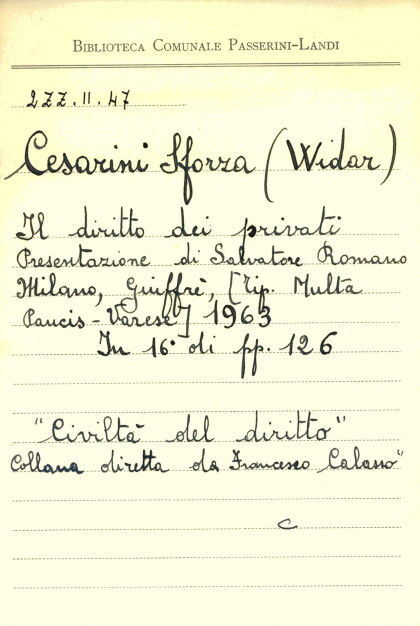 BIBLIOTECA COMUNALE PASSERINI-LANDI
2ZZ.II.47
Cesarini Sforza (Widar)
Il diritto dei privati
Presentazione di Salvatore Romano
Milano, Giuffrè, [Tip. Multa
Paucis - Varese] 1963
In 16° di pp. 126
"Civiltà del diritto"
Collana diretta da Francesco Calasso"
C